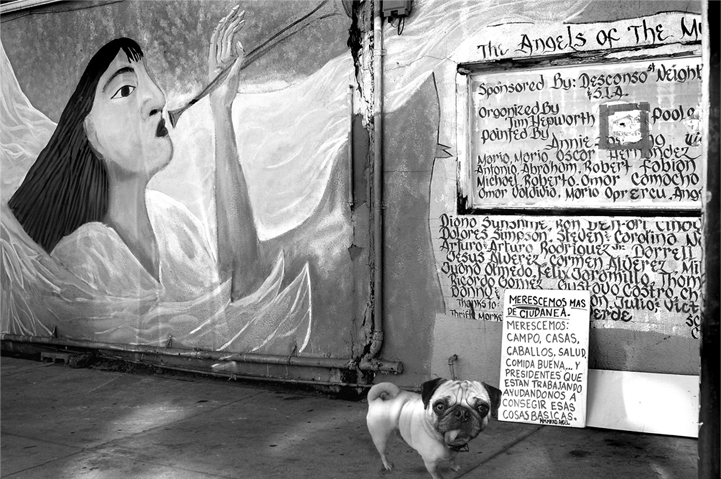 The Angels of The
Sponsored By: Desconso St Neigh
& S.I.A.
Organized By
Tim Hepworth Poole
Painted By
Annie
Mario, Mario, Oscar Hernandez
Antonio, Abraham, Robert, Fabian
Michael, Roberto, Omar Camacho
Omar Valdivio, Mario Oprercu, Ang
Diana Sunshine, Ron
Dolores Simpson, Steven & Carolina
Arturo & Arturo Rodriguez Jr. Darrell
Jesus Alverez, Carmen Alverez, Mi
Juana Olmedo, Felix Jaramillo, Thom
Ricardo Gomez, Gustavo Castro, Ch
Donna
Thanks to: Julio, Vict
Thrift
MERESCEMOS MAS
DE CIUDANEA.
MERESCEMOS:
CAMPO, CASAS,
CABALLOS, SALUD,
COMIDA BUENA,.. Y
PRESIDENTES QUE
ESTAN TRABAJANDO
AYUDANDONOS A
CONSEGIR ESAS
COSAS BASICAS.